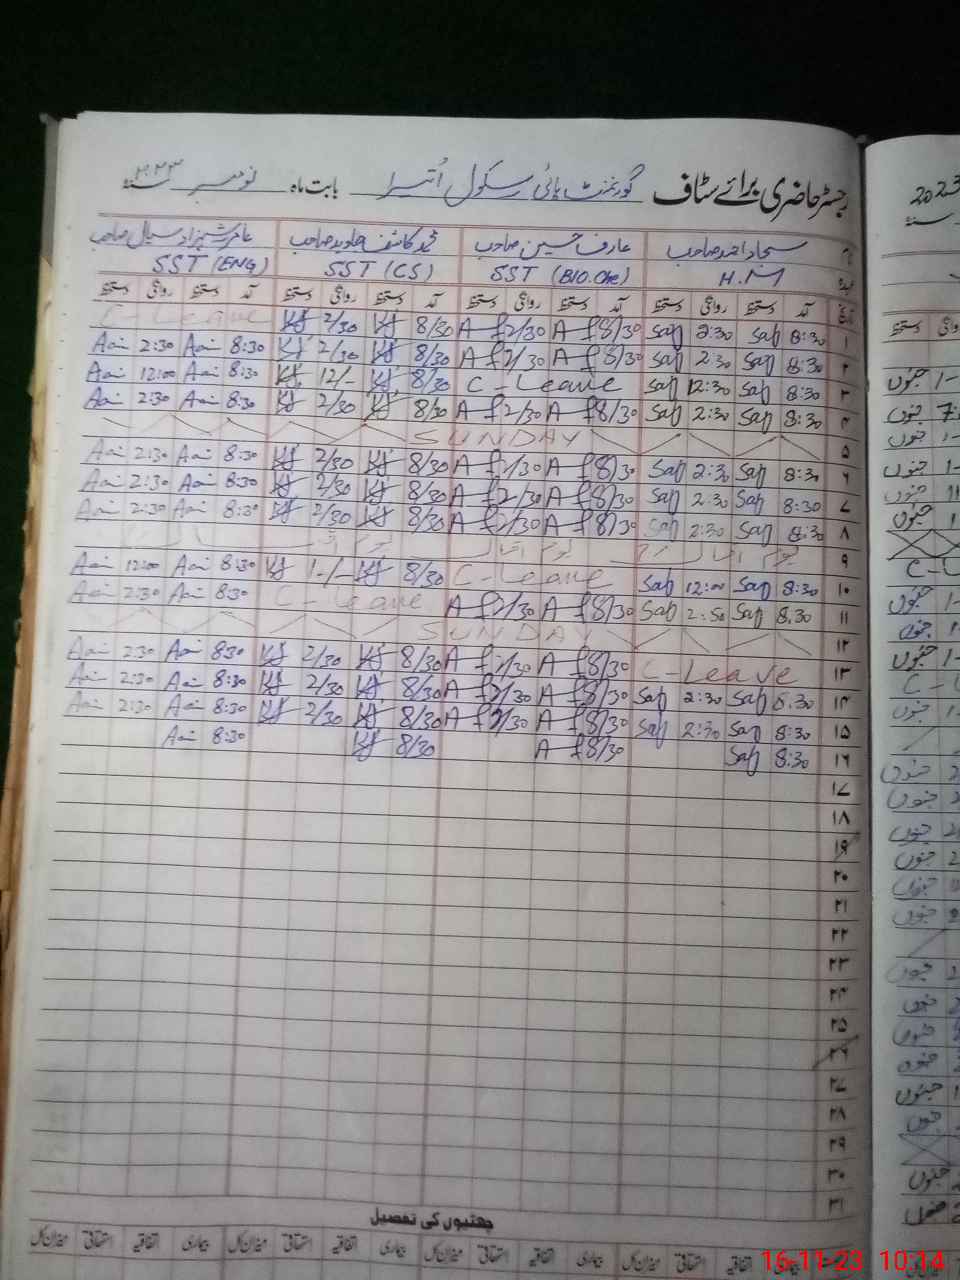 رجسٹر حاضری برائے سٹاف گورنمنٹ ہائی سکول اُتسرا بابت ماہ نومبر سنہ ۲۰۲۳
نام سجاد احمد صاحب عارف حسین صاحب محمد کاشف جاوید صاحب عامر شہزاد سیال صاحب
عہدہ H.M SST (BIO.Che) SST (CS) SST (ENG)
تاریخ آمد دستخط روانگی دستخط آمد دستخط روانگی دستخط آمد دستخط روانگی دستخط آمد دستخط روانگی دستخط
۱ 8:30 Saf 2:30 Saf 8/30 A f 2/30 A f 8/30 KJ 2/30 KJ C-Leave
۲ 8:30 Saf 2:30 Saf 8/30 A f 2/30 A f 8/30 KJ 2/30 KJ 8:30 Aai 2:30 Aai
۳ 8:30 Saf 12:30 Saf C-Leave 8/30 KJ 12/- KJ 8:30 Aai 12:00 Aai
۴ 8:30 Saf 2:30 Saf 8/30 A f 2/30 A f 8/30 KJ 2/30 KJ 8:30 Aai 2:30 Aai
۵ SUNDAY
۶ 8:30 Saf 2:30 Saf 8/30 A f 2/30 A f 8/30 KJ 2/30 KJ 8:30 Aai 2:30 Aai
۷ 8:30 Saf 2:30 Saf 8/30 A f 2/30 A f 8/30 KJ 2/30 KJ 8:30 Aai 2:30 Aai
۸ 8:30 Saf 2:30 Saf 8/30 A f 2/30 A f 8/30 KJ 2/30 KJ 8:30 Aai 2:30 Aai
۹ یوم اقبال یوم اقبال
۱۰ 8:30 Saf 12:00 Saf C-Leave 8/30 KJ 1-/- KJ 8:30 Aai 12:00 Aai
۱۱ 8:30 Saf 2:30 Saf 8/30 A f 2/30 A f C-Leave 8:30 Aai 2:30 Aai
۱۲ SUNDAY
۱۳ C-Leave 8/30 A f 2/30 A f 8/30 KJ 2/30 KJ 8:30 Aai 2:30 Aai
۱۴ 8:30 Saf 2:30 Saf 8/30 A f 2/30 A f 8/30 KJ 2/30 KJ 8:30 Aai 2:30 Aai
۱۵ 8:30 Saf 2:30 Saf 8/30 A f 2/30 A f 8/30 KJ 2/30 KJ 8:30 Aai 2:30 Aai
۱۶ 8:30 Saf 8/30 A f 8/30 KJ 8:30 Aai
۱۷
۱۸
۱۹
۲۰
۲۱
۲۲
۲۳
۲۴
۲۵
۲۶
۲۷
۲۸
۲۹
۳۰
۳۱
چھٹیوں کی تفصیل
اتفاقیہ استحقاقی میزان کل بیماری اتفاقیہ استحقاقی میزان کل بیماری اتفاقیہ استحقاقی میزان کل بیماری اتفاقیہ استحقاقی میزان کل
16-11-23 10:14
2023